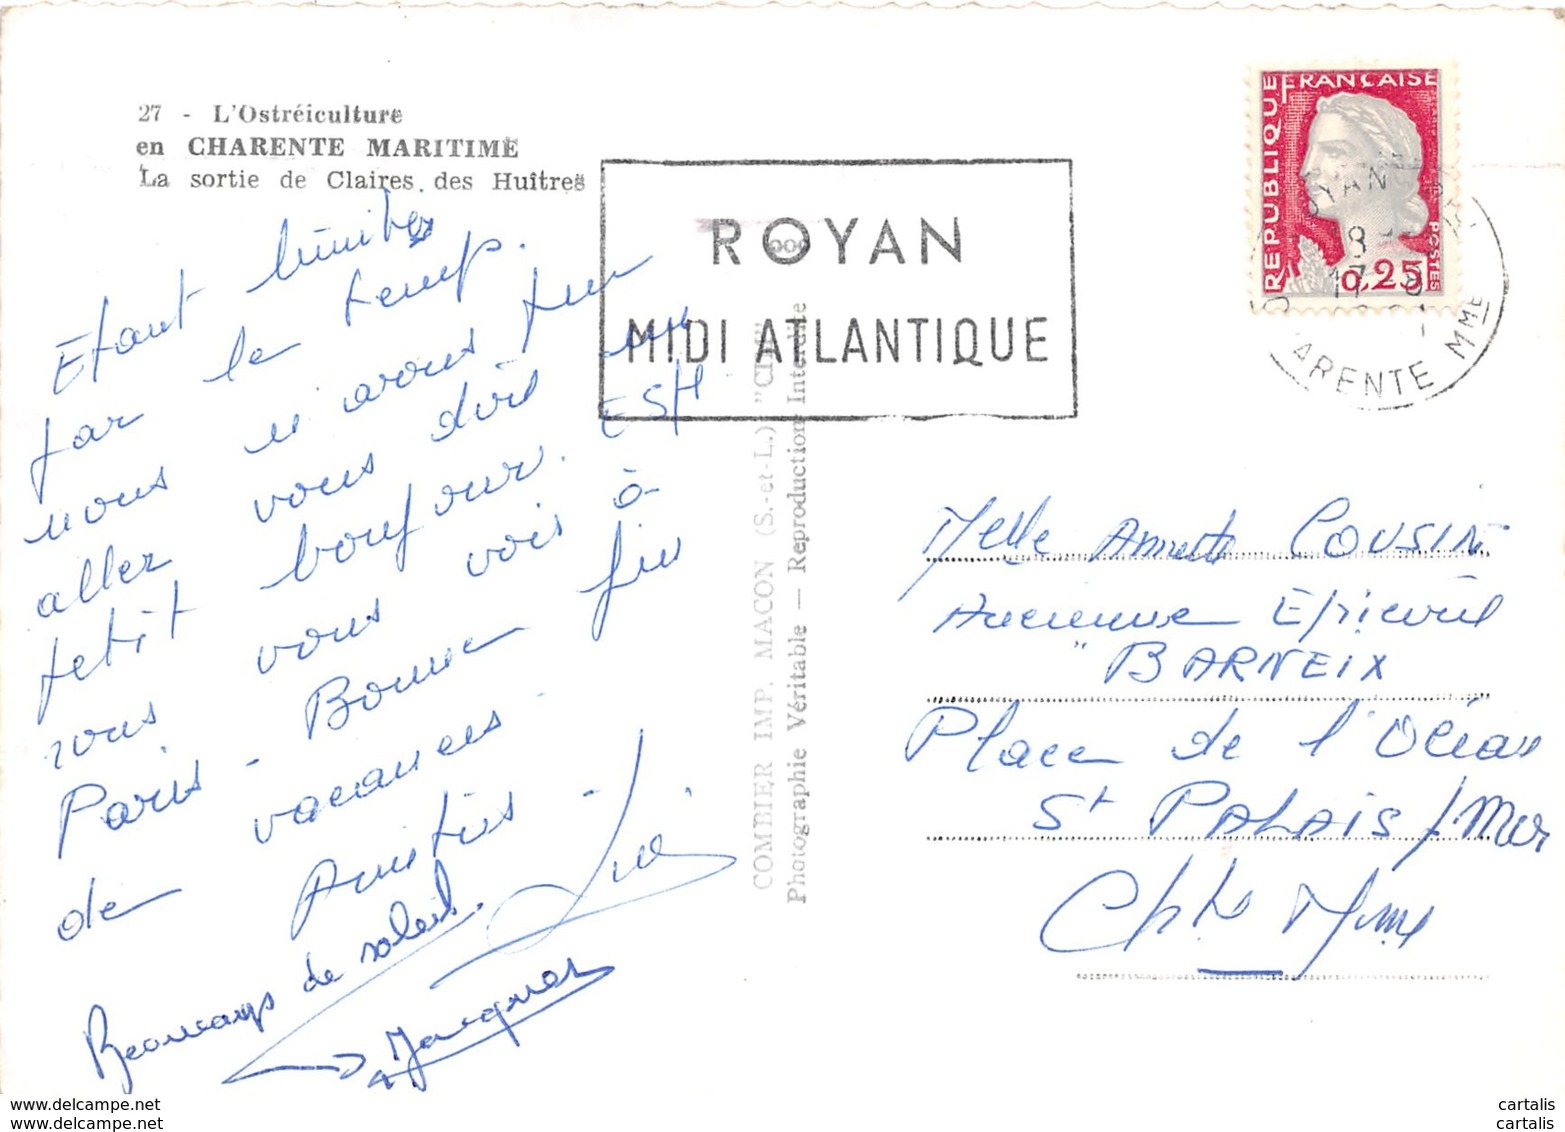 27 - L'Ostréiculture
en CHARENTE MARITIME
La sortie de Claires des Huîtres
ROYAN
MIDI ATLANTIQUE
RÉPUBLIQUE FRANÇAISE
0,25
POSTES
ARENTE MME
Etant limités
par le temps.
nous n'avons pu
aller vous dire un
petit bonjour.
vous vois à
Paris - Bonne fin
de vacances -
Amitiés -
Beaucoup de soleil.
Jacques
COMBIER IMP. MACON (S.-et-L.) "CIM"
Photographie Véritable — Reproduction Interdite
Melle Annette COUSIN
Ancienne Epicerie
"BARNEIX
Place de l'Océan
St PALAIS / Mer
Chte Mme
cartalis
cartalis
www.delcampe.net
www.delcampe.net
cartalis
cartalis